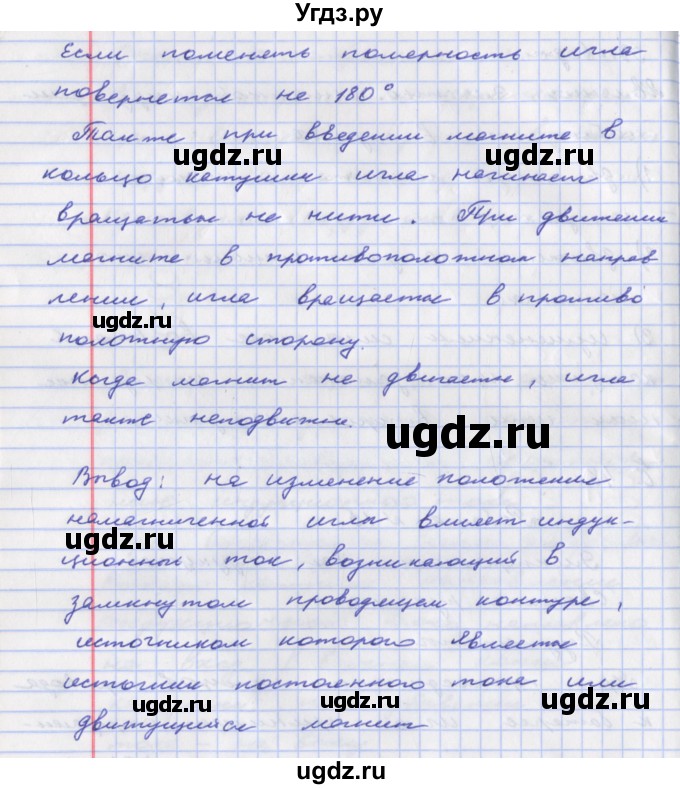 Угдз.ру
Если поменять полярность игла
повернется на 180°
Также при введении магнита в
ugdz.ru ugdz.ru
кольцо катушки игла начинает
вращаться на нити. При движении
магнита в противоположном направ
лении, игла вращается в противо
ugdz.ru
положную сторону.
Когда магнит не двигается, игла
также неподвижна.
ugdz.ru
Вывод: на изменение положения
намагниченной иглы влияет индук-
ugdz.ru
ционный ток, возникающий в
замкнутом проводящем контуре,
источником которого является
источник постоянного тока или
ugdz.ru ugdz.ru ugdz.ru
движущийся магнит
ugdz.ru